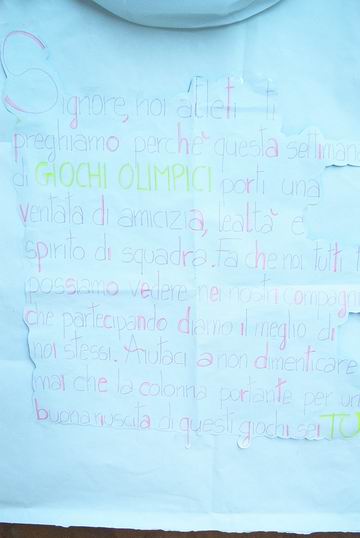 Signore, noi atleti ti
preghiamo perchè questa settimana
di GIOCHI OLIMPICI porti una
ventata di amicizia, lealtà e
spirito di squadra. Fa che noi tutti
possiamo vedere nei nostri compagni
che partecipando diamo il meglio di
noi stessi. Aiutaci a non dimenticare
mai che la colonna portante per una
buona riuscita di questi giochi sei TU